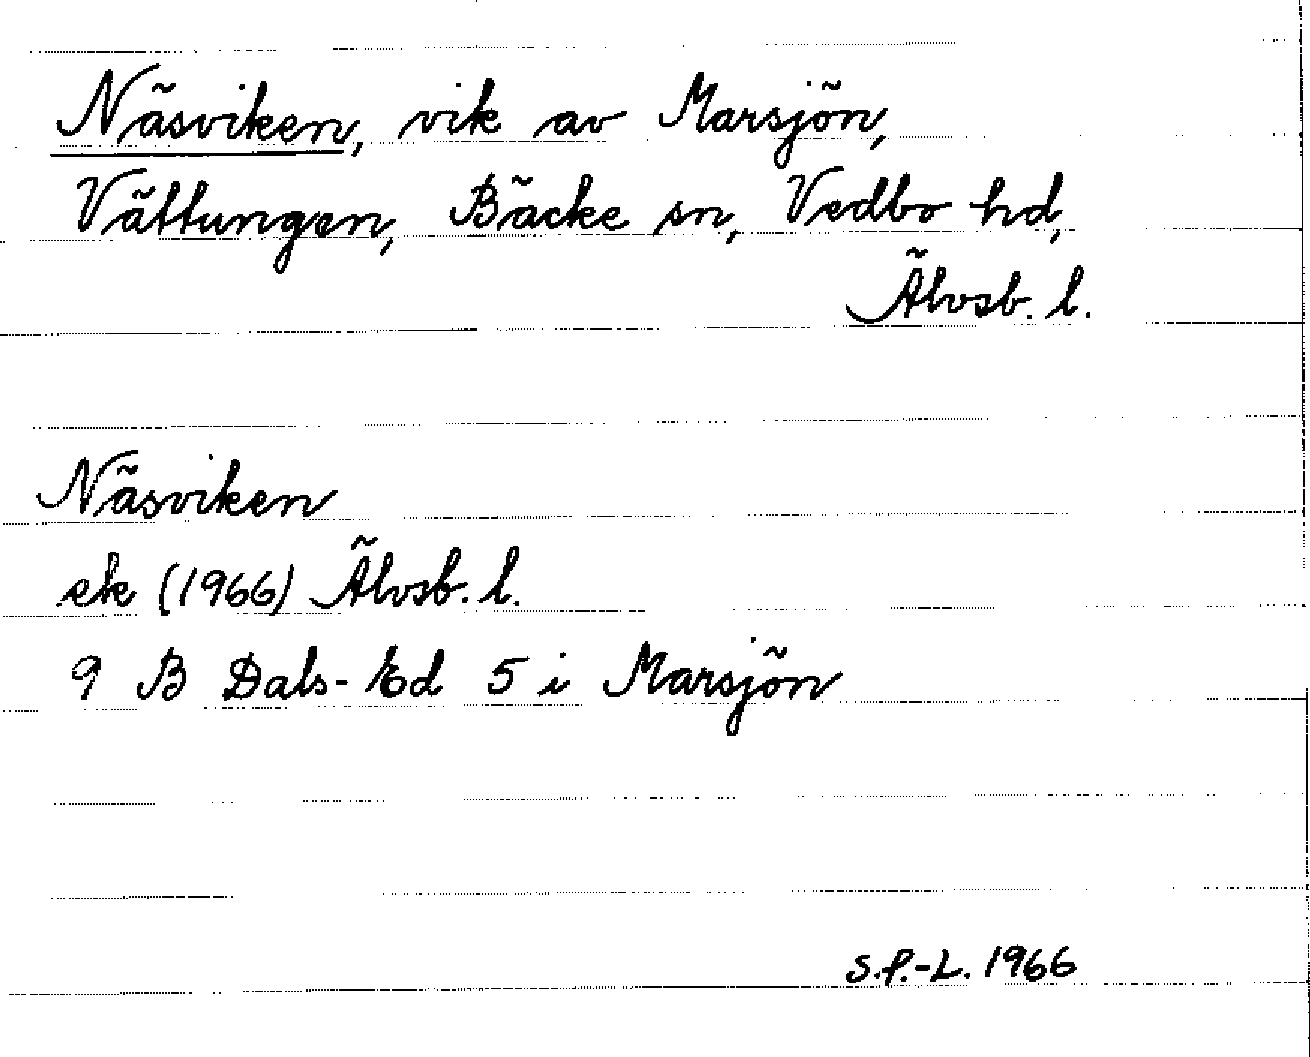 Näsviken, vik av Marsjön,
Vättungen, Bäcke sn, Vedbo hd,
Älvsb. l.
Näsviken
ek (1966) Älvsb. l.
9 B Dals-Ed 5 i Marsjön
S.P.-L. 1966